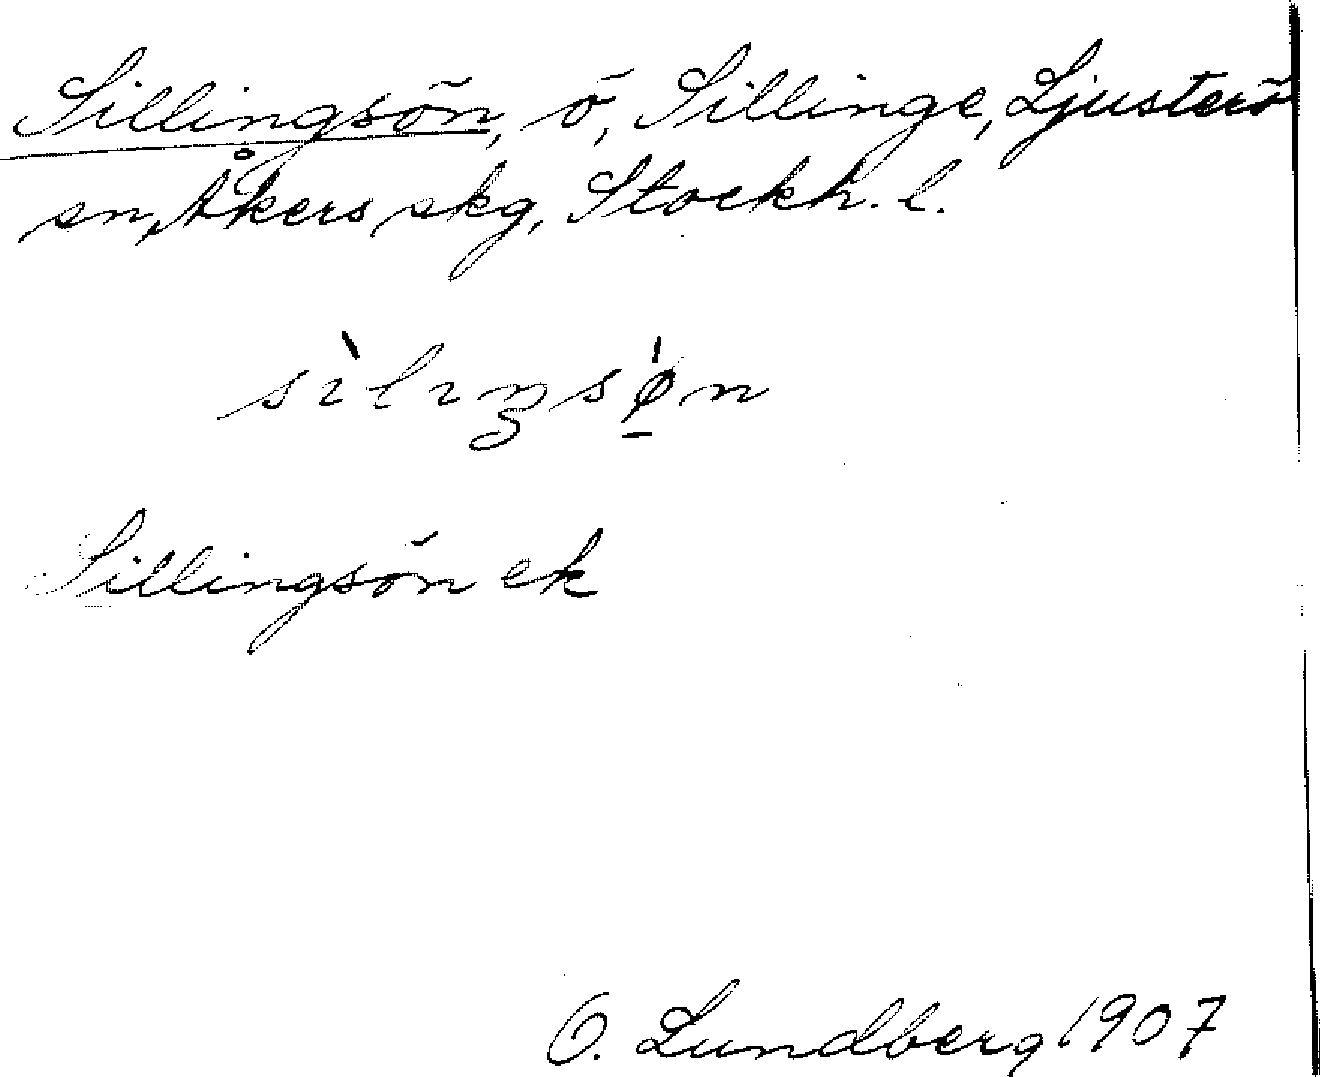 Sillingsön, ö, Sillinge, Ljusterö
sn, Åkers skg, Stockh. l.
sìlıŋsǿ̱n
Sillingsön ek
O. Lundberg 1907